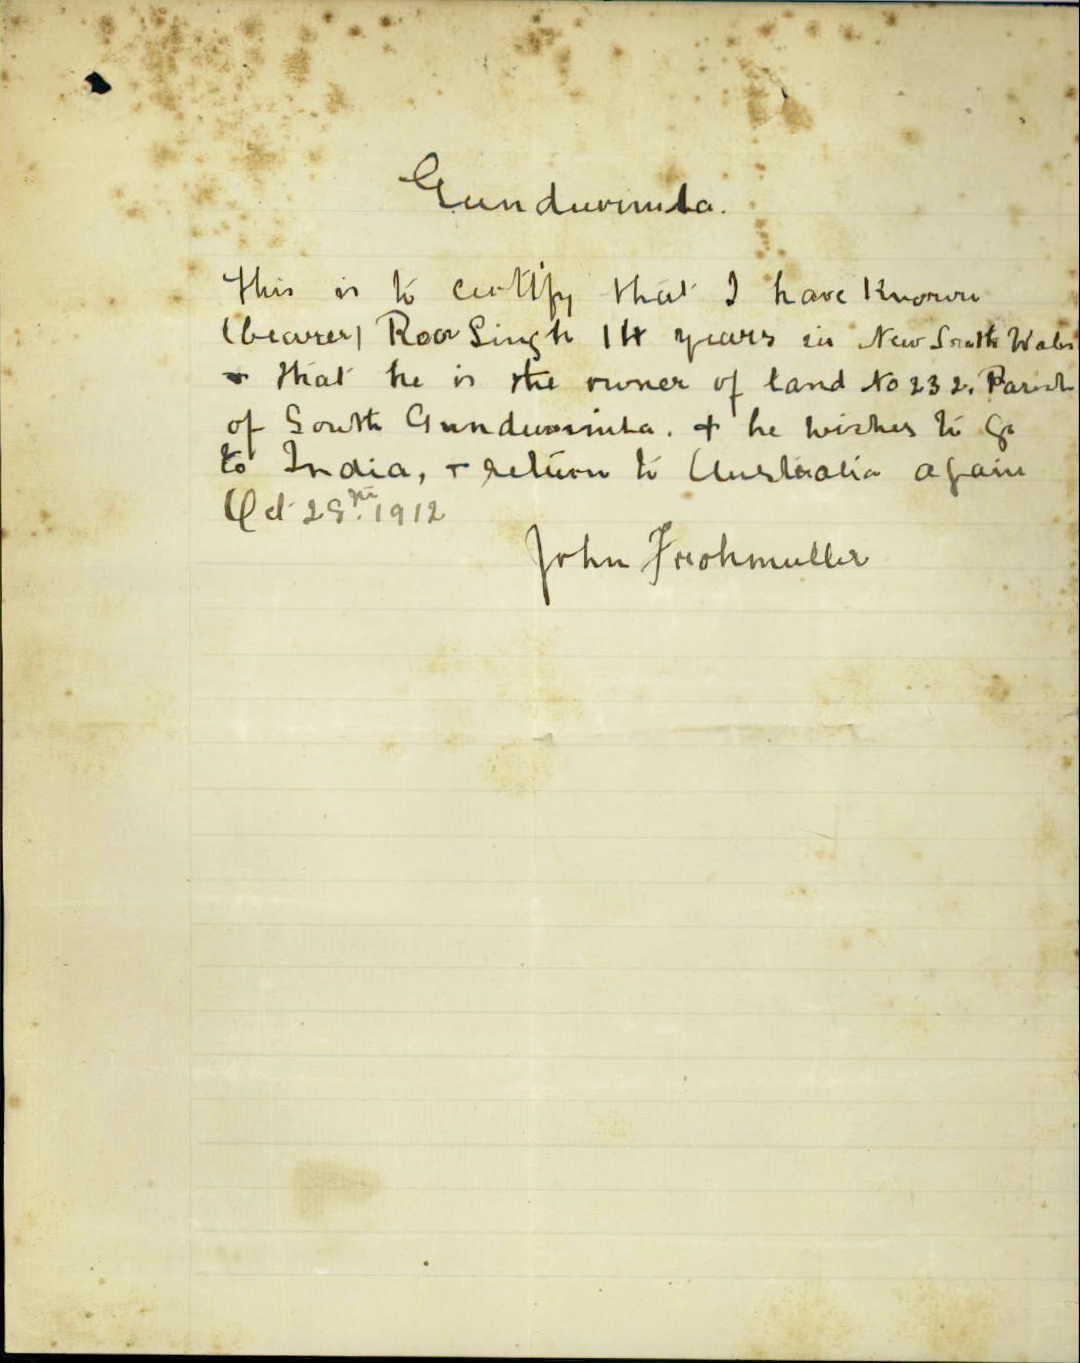 Gundurimba.
This is to certify that I have Known
(bearer) Roor Singh 14 years in New South Wales
+ that he is the owner of land No 232. Parish
of South Gundurimba. + he wishes to go
to India, + return to Australia again
Oct 28th. 1912
John Frohmuller